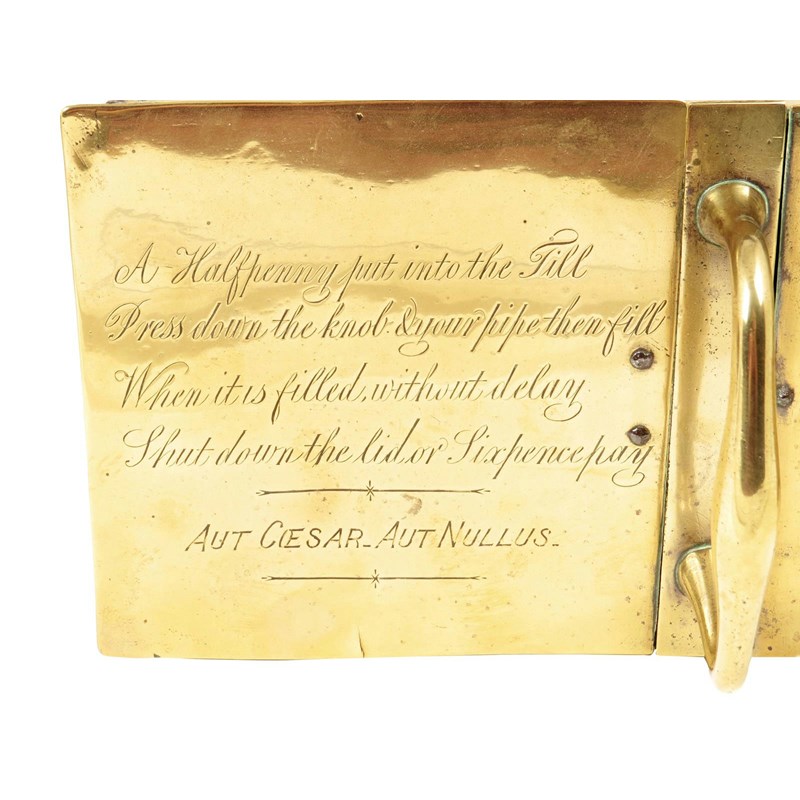 A Halfpenny put into the Till
Press down the knob & your pipe then fill
When it is filled, without delay
Shut down the lid or Sixpence pay
AUT CŒSAR_AUT NULLUS_